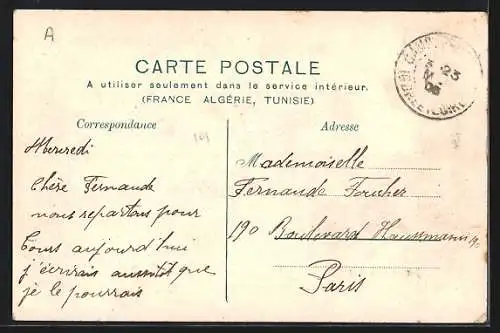 A
CARTE POSTALE
A utiliser seulement dans le service intérieur.
(FRANCE ALGÉRIE, TUNISIE)
Correspondance
Adresse
Mercredi
Chère Fernande
nous repartons pour
Tours aujourd'hui
j'écrirais aussitôt que
je le pourrais
Mademoiselle
Fernande Foucher
190 Boulevard Haussmann
Paris
23